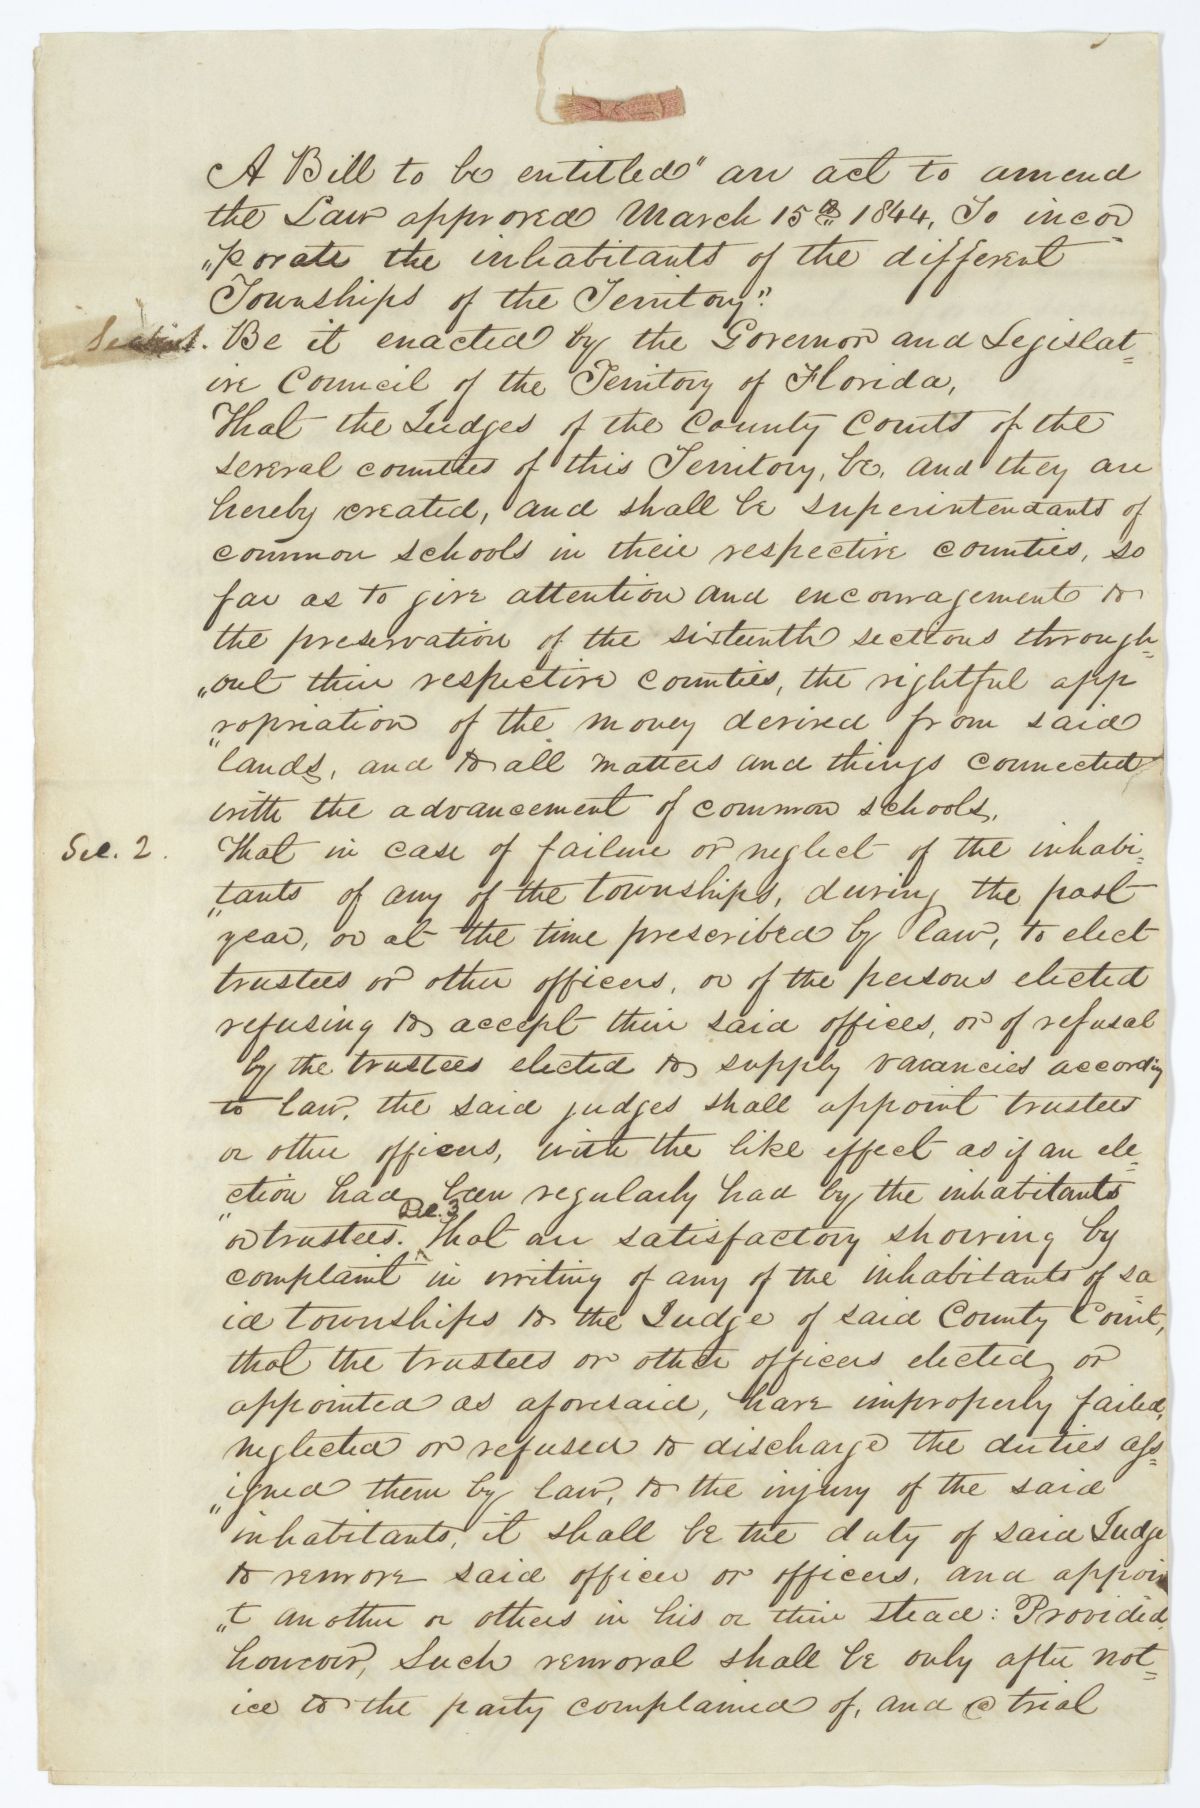 A Bill to be entitled "an act to amend
the Law approved March 15th 1844, To incor
"porate the inhabitants of the different
Townships of the Territory".
Section 1. Be it enacted by the Governor and Legislat=
ive Council of the Territory of Florida,
That the Judges of the County Courts of the
several counties of this Territory, be, and they are
hereby created, and shall be superintendants of
common schools in their respective counties, so
far as to give attention and encouragement to
the preservation of the sixteenth sections through=
"out their respective counties, the rightful app
"ropriation of the money derived from said
lands, and to all matters and things connected
with the advancement of common schools.
Sec. 2. That in case of failure or neglect of the inhabi=
"tants of any of the townships, during the past
year, or at the time prescribed by law, to elect
trustees or other officers, or of the persons elected
refusing to accept their said offices, or of refusal
by the trustees elected to supply vacancies according
to law, the said judges shall appoint trustees
or other officers, with the like effect as if an ele=
"ction had been regularly had by the inhabitants
or trustees. Sec. 3 That on satisfactory showing by
complaint in writing of any of the inhabitants of sa=
id townships to the Judge of said County Court,
that the trustees or other officers elected or
appointed as aforesaid, have improperly failed,
neglected or refused to discharge the duties ass=
"igned them by law, to the injury of the said
inhabitants, it shall be the duty of said Judge
to remove said officer or officers, and appoin
"t another or others in his or their stead: Provided,
however, Such removal shall be only after not=
ice to the party complained of, and a trial